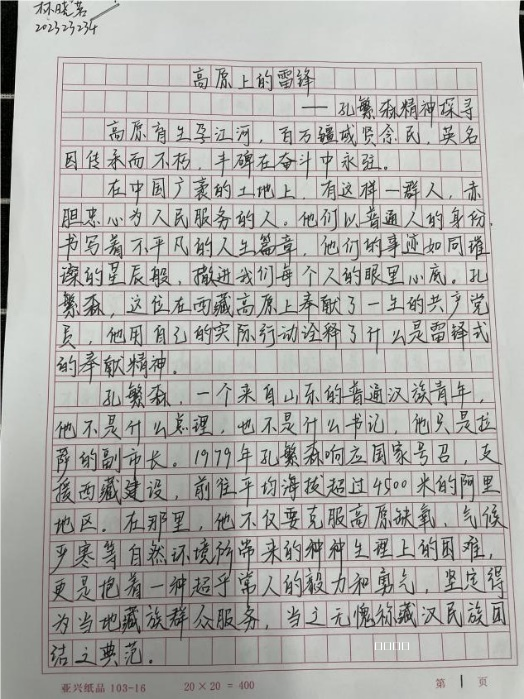 林晓茗
2023223234
高原上的雷锋
——孔繁森精神探寻
高原育生孕江河，百万疆域贤念民，英名
因传承而不朽，丰碑在奋斗中永驻。
在中国广袤的土地上，有这样一群人，赤
胆忠心为人民服务的人。他们以普通人的身份，
书写着不平凡的人生篇章，他们的事迹如同璀
璨的星辰般，撒进我们每个人的眼里心底。孔
繁森，这位在西藏高原上奉献了一生的共产党
员，他用自己的实际行动诠释了什么是雷锋式
的奉献精神。
孔繁森，一个来自山东的普通汉族青年，
他不是什么总理，也不是什么书记，他只是拉
萨的副市长。1979年孔繁森响应国家号召，支
援西藏建设，前往平均海拔超过4500米的阿里
地区。在那里，他不仅要克服高原缺氧，气候
严寒等自然环境所带来的种种生理上的困难，
更是抱着一种超乎常人的毅力和勇气，坚定得
为当地藏族群众服务，当之无愧称藏汉民族团
结之典范。
亚兴纸品 103-16 20×20=400 第 1 页